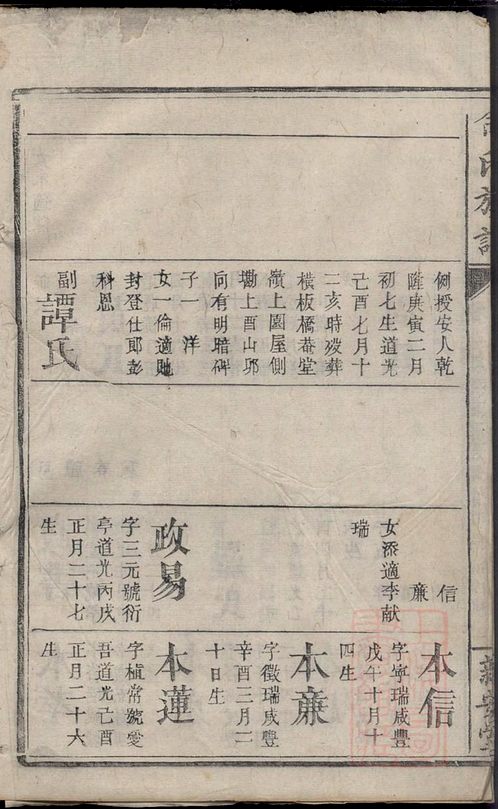 例授安人乾
隆庚寅二月
初七生道光
己酉七月十
二亥時歿葬
橫板橋菴堂
嶺上園屋側
塝上酉山卯
向有明暗碑
子一 洋
女一倫適貤
封登仕郎彭
科恩
副譚氏
信
亷
女添適李献
瑞
政易
字三元號衍
亭道光丙戌
正月二十七
生
本信
字寧瑞咸豐
戊午十月十
四生
本亷
字徵瑞咸豐
辛酉三月二
十日生
本蓮
字植常號愛
吾道光己酉
正月二十六
生